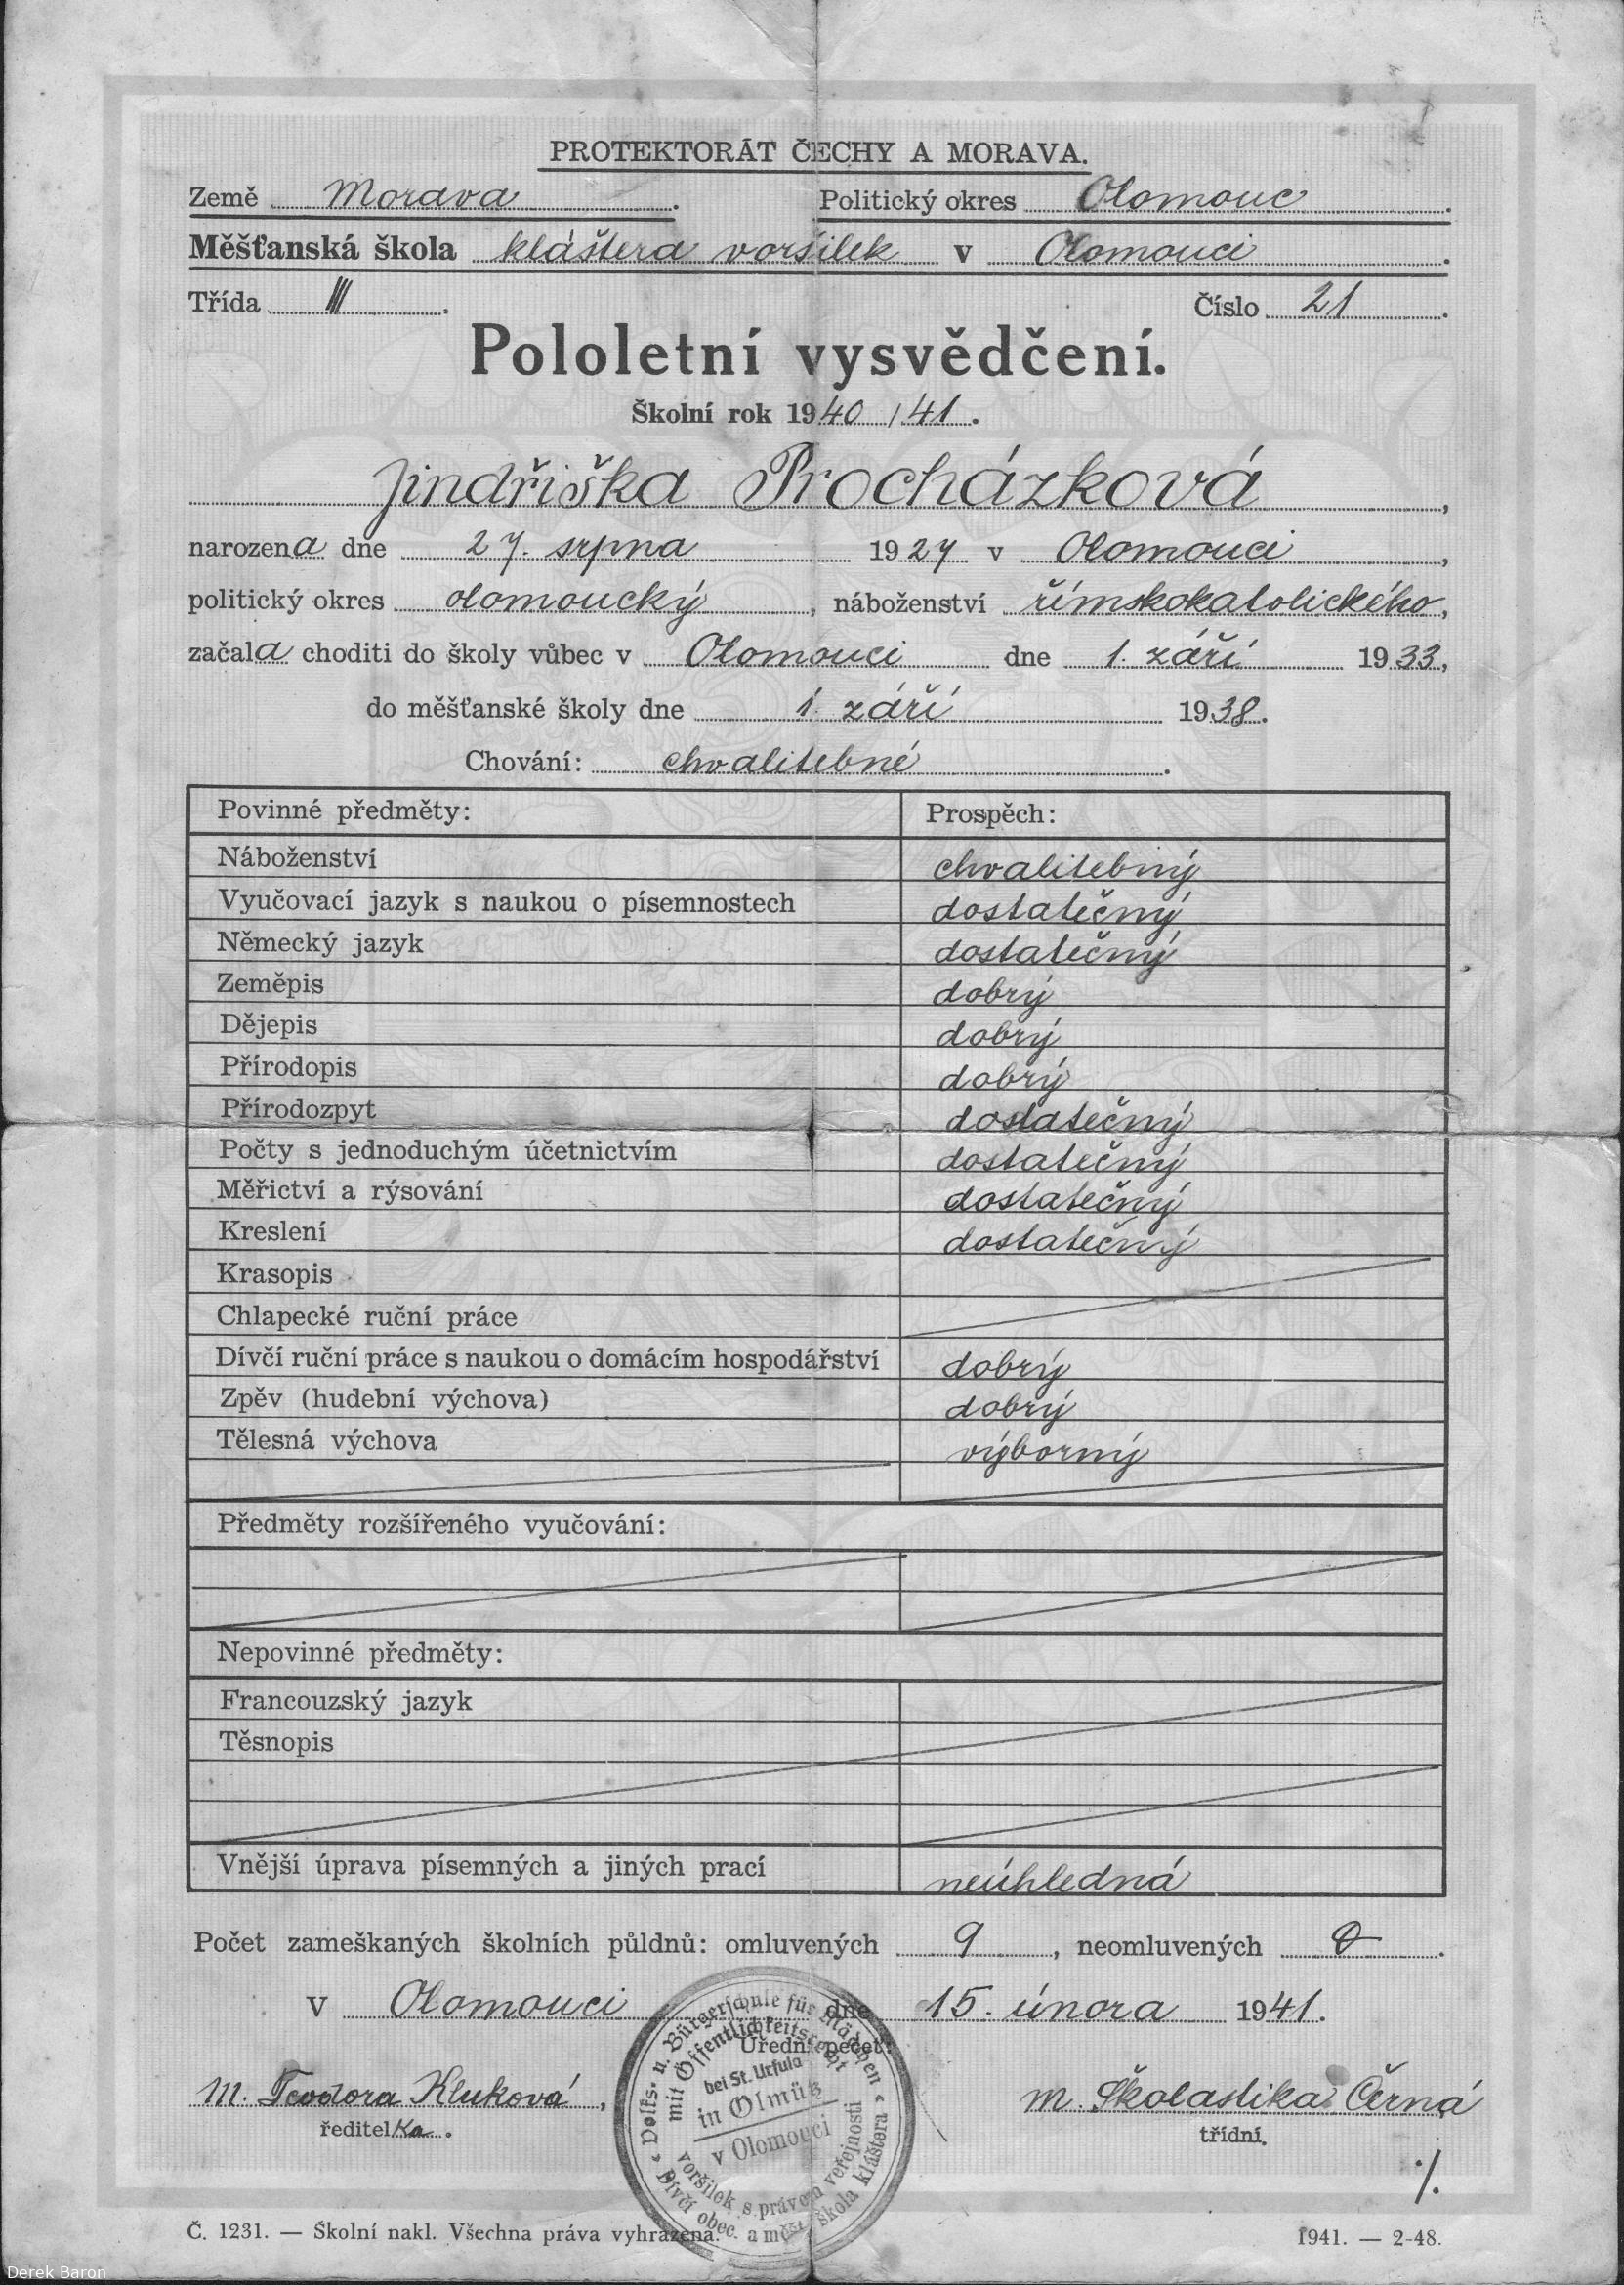 PROTEKTORÁT ČECHY A MORAVA.
Země Morava. Politický okres Olomouc.
Měšťanská škola kláštera voršilek v Olomouci.
Třída III. Číslo 21.
Pololetní vysvědčení.
Školní rok 1940/41.
Jindřiška Procházková,
narozena dne 27. srpna 1927 v Olomouci,
politický okres olomoucký, náboženství římskokatolického,
začala choditi do školy vůbec v Olomouci dne 1. září 1933,
do měšťanské školy dne 1. září 1938.
Chování: chvalitebné.
Povinné předměty: Prospěch:
Náboženství chvalitebný
Vyučovací jazyk s naukou o písemnostech dostatečný
Německý jazyk dostatečný
Zeměpis dobrý
Dějepis dobrý
Přírodopis dobrý
Přírodozpyt dostatečný
Počty s jednoduchým účetnictvím dostatečný
Měřictví a rýsování dostatečný
Kreslení dostatečný
Krasopis
Chlapecké ruční práce
Dívčí ruční práce s naukou o domácím hospodářství dobrý
Zpěv (hudební výchova) dobrý
Tělesná výchova výborný
Předměty rozšířeného vyučování:
Nepovinné předměty:
Francouzský jazyk
Těsnopis
Vnější úprava písemných a jiných prací neúhledná
Počet zameškaných školních půldnů: omluvených 9, neomluvených 0.
v Olomouci dne 15. února 1941.
Úřední pečeť:
Volks- u. Bürgerschule für Mädchen
mit Öffentlichkeitsrecht
bei St. Ursula
in Olmütz
v Olomouci
voršilek s právem veřejnosti
Dívčí obec. a měšť. škola kláštera
M. Teodora Kluková, M. Školastika Černá
ředitelka. třídní.
./.
Č. 1231. — Školní nakl. Všechna práva vyhrazena. 1941. — 2-48.
Derek Baron